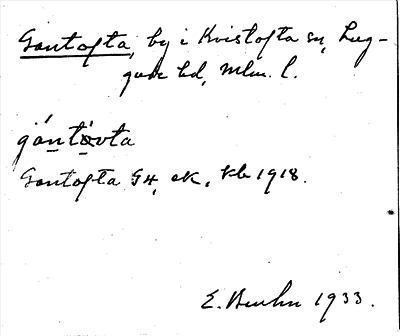 Gantofta, by i Kvistofta sn, Lug-
gude hd, Mlm. l.
gántòvta
Gantofta G4, ek, kb 1918.
E. Bruhn 1933.